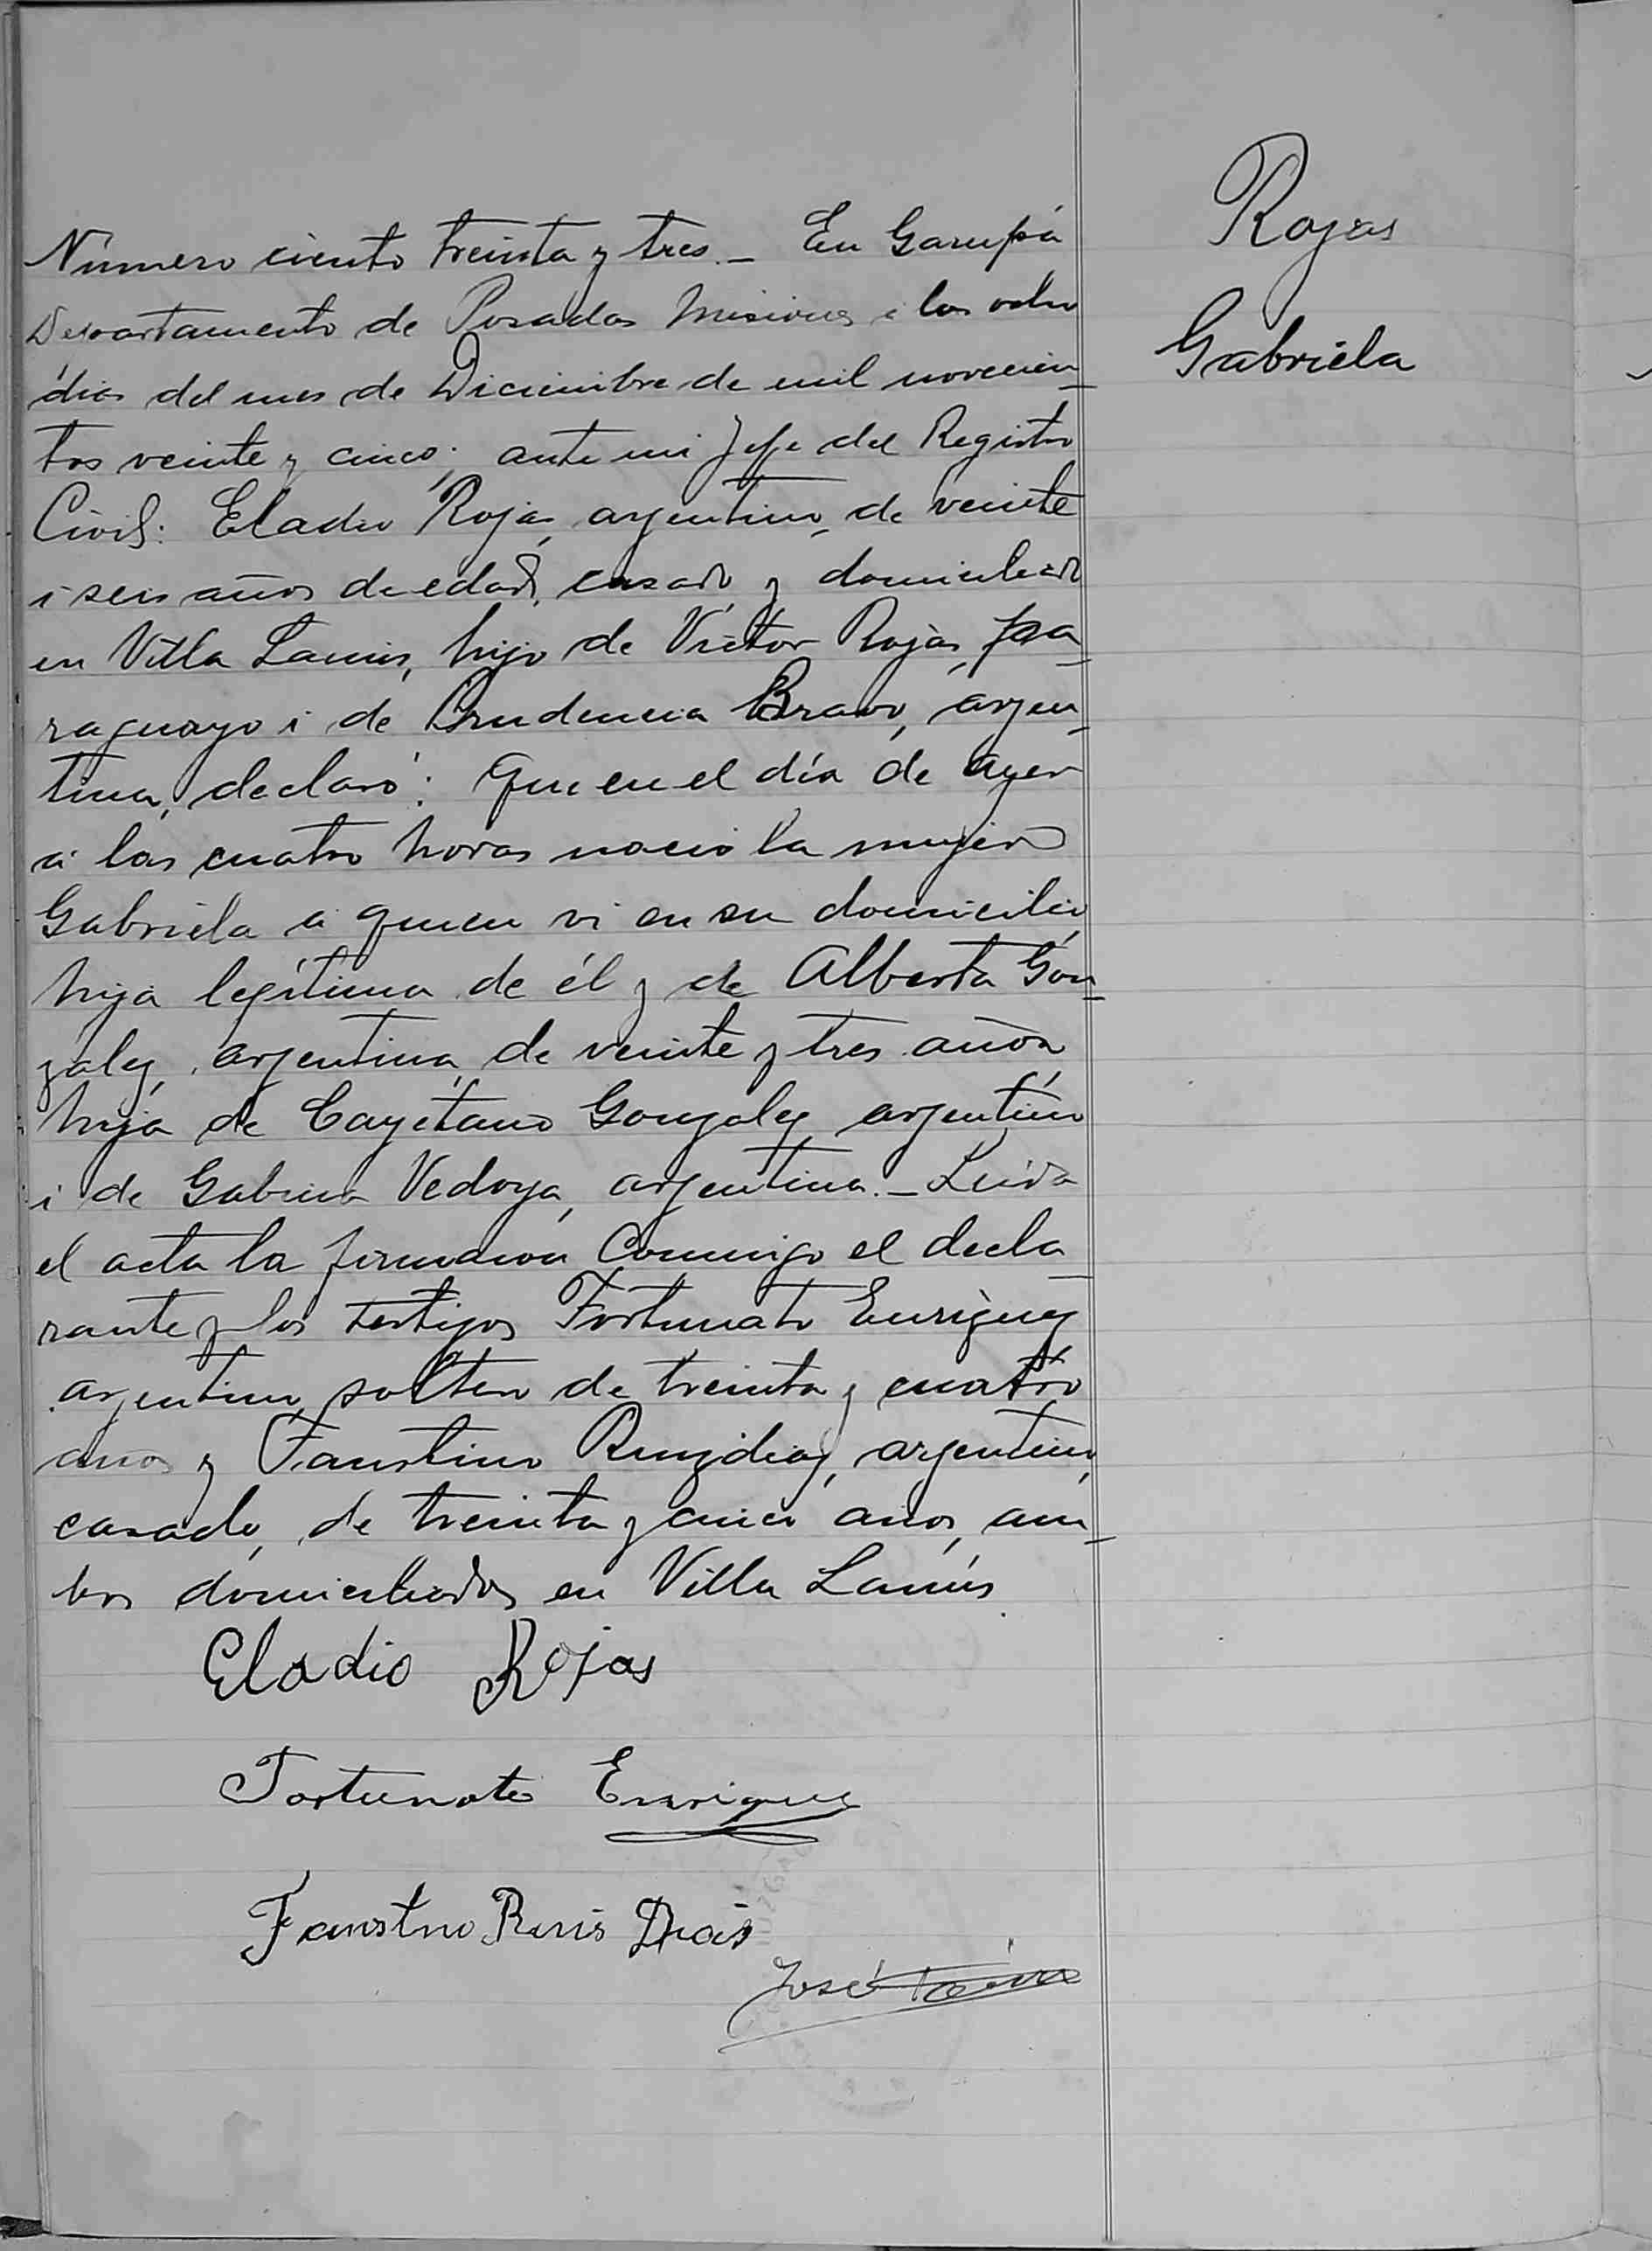 Rojas
Gabriela
Número ciento treinta y tres.- En Garupá
Departamento de Posadas Misiones á los ocho
días del mes de Diciembre de mil novecien-
tos veinte y cinco; ante mi Jefe del Registro
Civil: Eladio Rojas, argentino, de veinte
i seis años de edad, casado, y domiciliado
en Villa Lanús, hijo de Víctor Rojas, pa-
raguayo i de Prudencia Bravo, argen-
tina, declaró: Que en el día de ayer
á las cuatro horas nació la mujer
Gabriela á quien vi en su domicilio,
hija legítima de él y de Alberta Gon-
zalez, argentina, de veinte y tres años,
hija de Cayetano Gonzalez, argentino
i de Vedoya, argentina.- Leida
el acta la firmaron conmigo el decla-
rante y los testigos Fortunato Enriquez
argentino, soltero de treinta y cuatro
años y Faustino Ruizdiaz, argentino,
casado, de treinta y cinco años, am-
bos domiciliados en Villa Lanús.
Eladio Rojas
Fortunato Enriquez
Faustno Ruis Dias
José